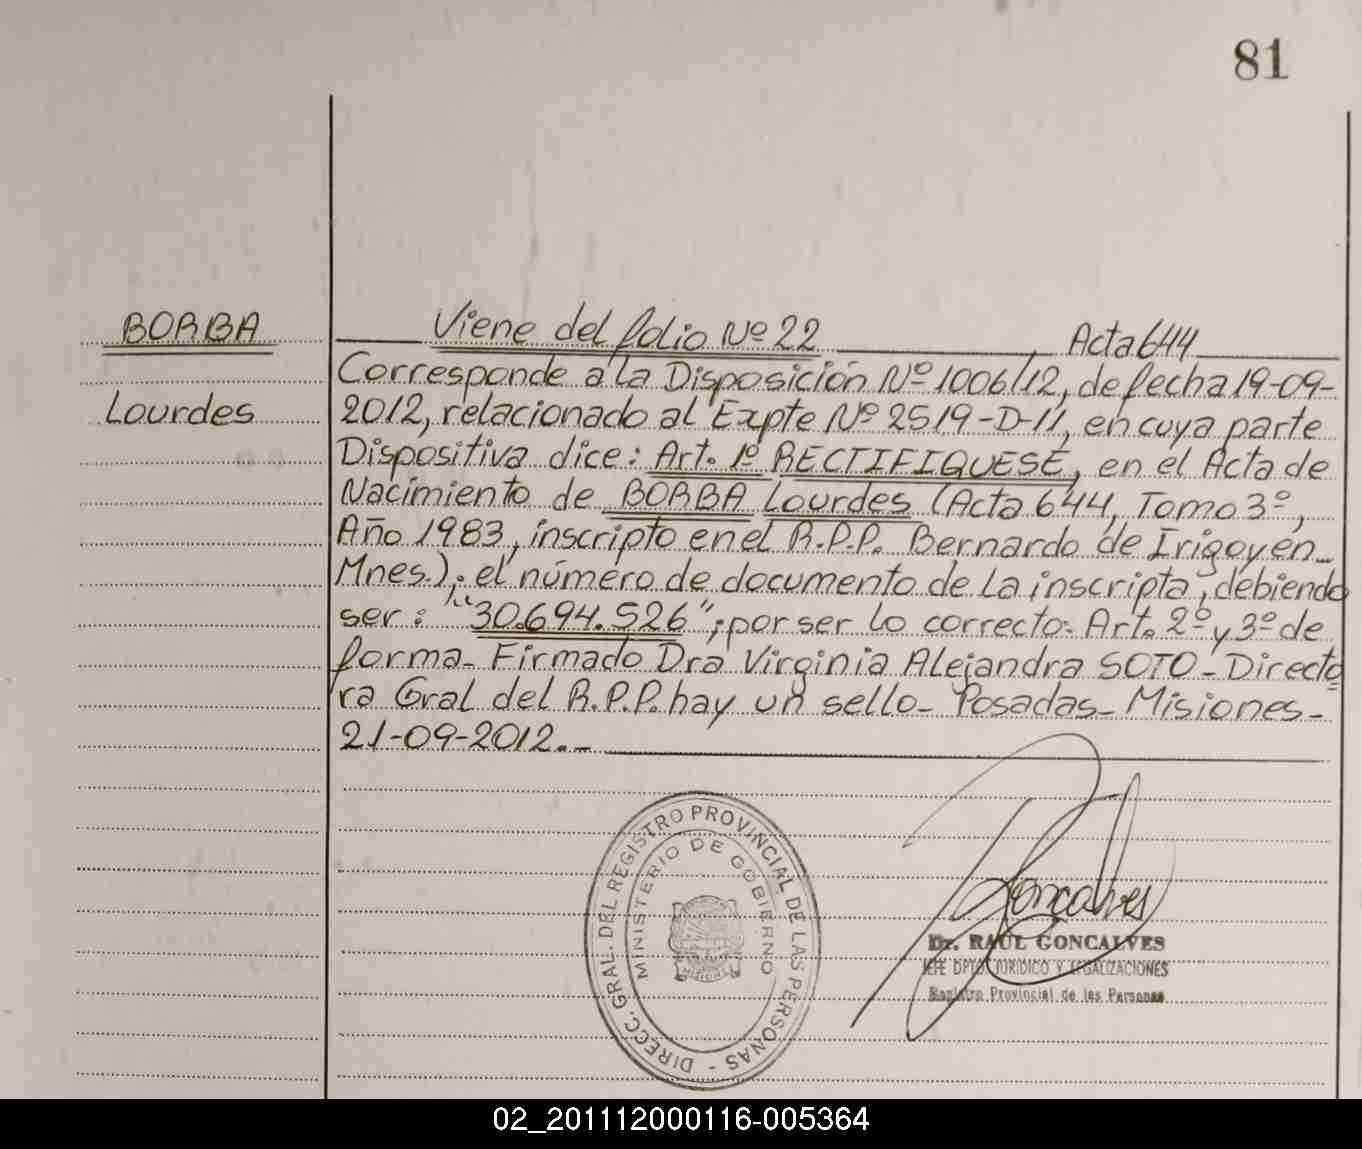 81
BORBA
Lourdes
Viene del folio Nº 22 Acta 644
Corresponde a la Disposición Nº 1006/12, de fecha 19-09-
2012, relacionado al Expte Nº 2519-D-11, en cuya parte
Dispositiva dice: Art. 1º RECTIFIQUESE, en el Acta de
Nacimiento de BORBA Lourdes (Acta 644, Tomo 3º,
Año 1983, inscripto en el R.P.P. Bernardo de Irigoyen
Mnes.); el número de documento de la inscripta, debiendo
ser: "30.694.526"; por ser lo correcto. Art. 2º y 3º de
forma- Firmado Dra Virginia Alejandra SOTO- Directo
ra Gral del R.P.P. hay un sello- Posadas- Misiones-
21-09-2012.-
DIRECC. GRAL. DEL REGISTRO PROVINCIAL DE LAS PERSONAS -
MINISTERIO DE GOBIERNO
MISIONES
Goncalves
Dr. RAUL GONCALVES
JEFE DPTO JURIDICO Y LEGALIZACIONES
Registro Provincial de las Personas
02_201112000116-005364